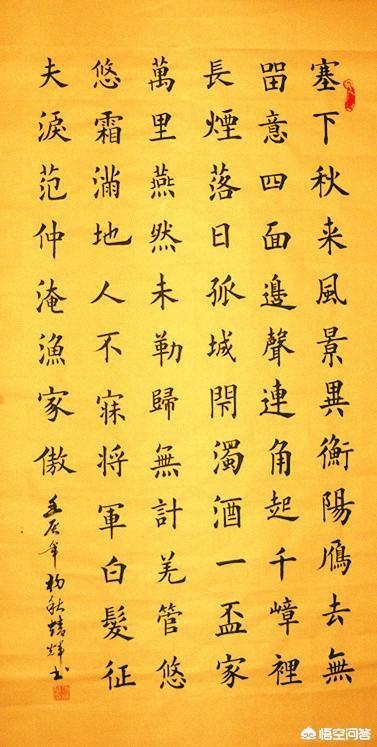 塞下秋来風景異衡陽鴈去無
畱意四面邊聲連角起千嶂裡
長煙落日孤城閇濁酒一盃家
萬里燕然未勒歸無計羌管悠
悠霜滿地人不寐将軍白髮征
夫淚范仲淹漁家傲
壬辰年杨秋
悟空问答